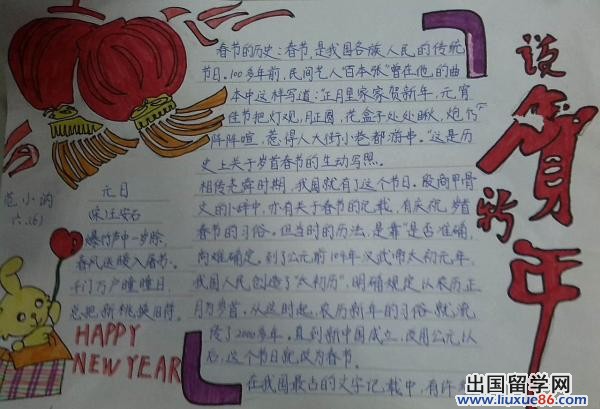 说贺新年
春节的历史:春节,是我国各族人民的传统
节日。100多年前,民间艺人"百本张"曾在他的曲
本中这样写道:"正月里家家贺新年,元宵
佳节把灯观,月正圆,花盒子处处瞅,炮竹
阵阵喧,惹得人大街小巷都游串。"这是历
史上关于岁首春节的生动写照。
相传尧舜时期,我国就有了这个节日。殷商甲骨
文的小碎中,亦有关于春节的记载,有庆祝岁首
春节的习俗。但当时的历法,是靠"是否准确,
尚难确定。到了公元前104年汉武帝太初元年,
我国人民创造了"太初历",明确规定以农历正
月为岁首。从这时起,农历新年的习俗就流
传了2000多年。直到新中国成立,改用公元以
后,这个节日就改为春节。
在我国最古的文字记载中,有许多
范小
六.(6)
元日
宋:王安石
爆竹声中一岁除,
春风送暖入屠苏。
千门万户曈曈日,
总把新桃换旧符。
HAPPY
NEW YEAR
出国留学网
www.liuxue86.com